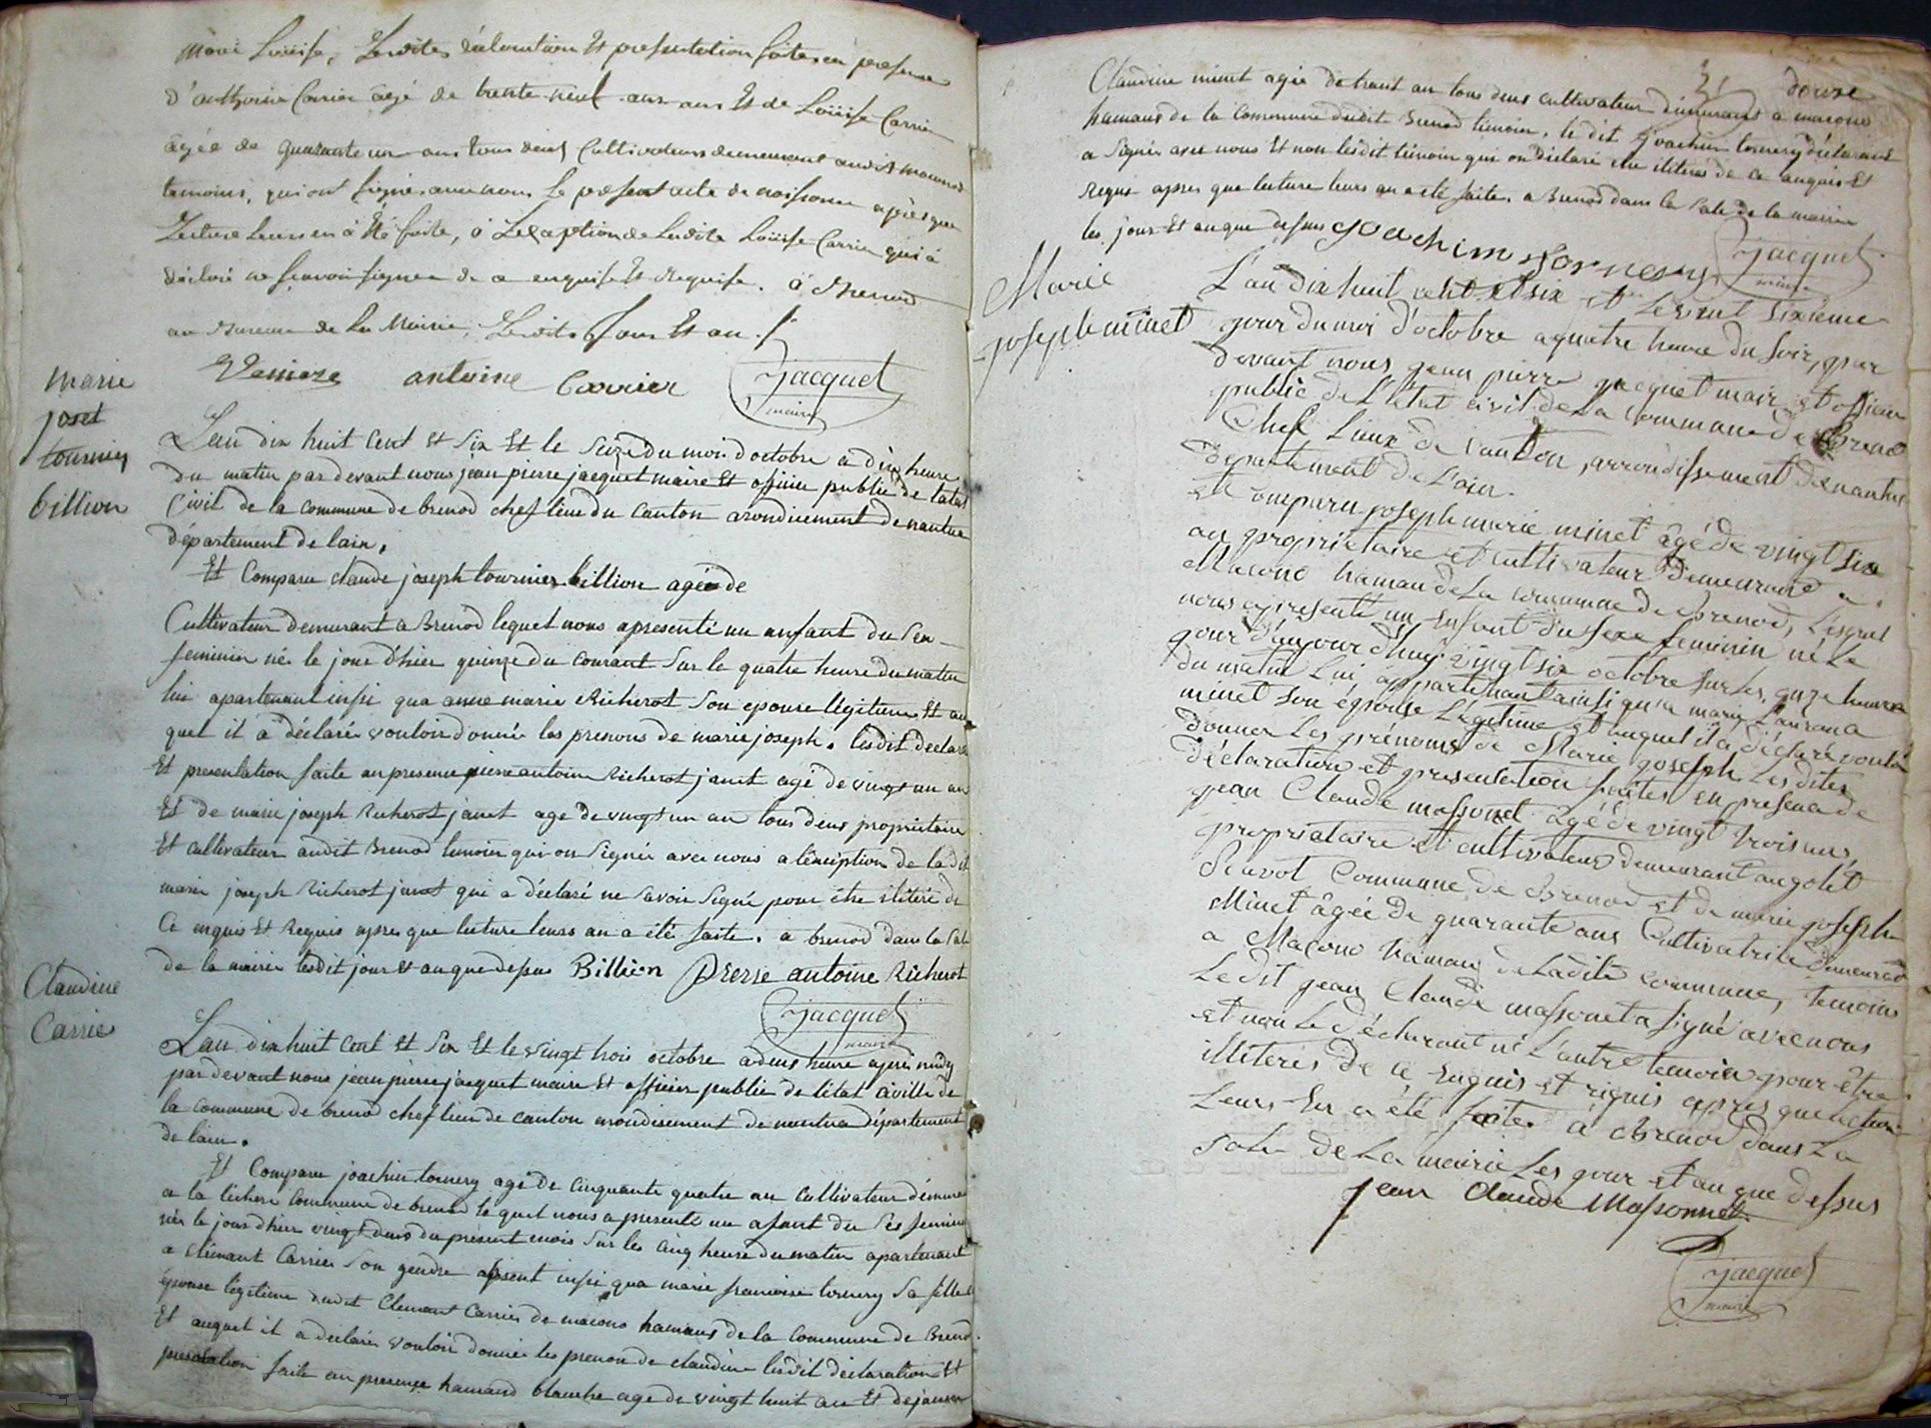 Marie Louise, Lesdites déclaration Et presentation faites en presence
d'anthoine Carrier âgé de trente neuf ans Et de Loüise Carrier
âgée de quarante un ans tous deux Cultivateurs demeurant audit maconod
temoins, qui ont signé avec nous le present acte de naissance après que
Lecture Leurs en à Eté faite, à Lexception de Ladite Loüise Carrier qui à
déclaré ne scavoir signer de ce enquise Et Requise. à Brenod
au Bureau de La Mairie, Lesdits Jour Et an
antoine Carrier jacquet
maire
marie
joset
tournier
billion
Lan dix huit Cent et Six Et le Seize du moi doctobre a dix heure
du matin par devant nous jean pierre jacquet maire Et officier publie de letat
Civil de la commune de brenod chef lieu du Canton arondisement de nantua
département de lain,
Et Comparu claude joseph tournier billion agé de
Cultivateur demurant a Brenod lequel nous apresenté un anfant du Sex
feminin né le jour d'hier quinze du courant Sur le quatre heure du matin
lui apartenant insi qua anne marie Richerot Son epouse légitime Et au
quel it a déclaré vouloir donné les prenons de marie joseph. lesdit declara
Et presentation faite an presence pierre antoine Richerot janet agé de vingt un an
Et de marie joseph Richerot janet age de vingt un an tous deux propriétaire
Et cultivateur audit Brenod temoin qui on Signé avec nous a l'exception de ladit
marie joseph Richerot janet qui a déclaré ne Savoir Signé pour être ilitéré de
Ce enquis Et Requis apres que lecture leurs an a été faite. a brenod dans la Sale
de la mairie lesdit jour Et an que dessus Billion Pierre antoine Richerot
jacquet
maire
Claudine
Carrier
Lan dix huit Cent Et Six Et le vingt trois octobre a deus heure apres midy
par devant nous jean pierre jacquet maire Et officier publie de l'état civille de
la commune de brenod chef lieu de canton arondisement de nantua département
de lain.
Et Comparu joachim tornery agé de Cinquante quatre an cultivateur démura
a la lechere commune de brenod le quel nous a presente un afant du Ses feminin
née le jour d'hier vingt deus du présent mois Sur les cinq heure du matin apartenant
a clémant Carrier Son gendre absent insi qua marie francoise tornery Sa fille
épouse légitime dudit Clemant Carrier de macono hamaus de la Commune de Brenod
Et auquel it a declaré vouloir donnée les prenon de claudine lesdit déclaration Et
presentation faite an presence hamand blanche age de vingt huit an Et de janne
31 douse
Claudine minet agée de trant an tous deus cultivateur démurant a macono
hamaus de la Commune dudit Brenod témoin. le dit joachim tornery déclarant
a Signée avec nous Et non lesdit témoin qui on déclaré etre ilitéré de ce anquis Et
requis apres que lecture leurs an a été faite. a Brenod dans la Sale de la mairie
les jour Et an que dessus joachim tornery jacquet
maire
Marie
joseph minet
L'an dix huit cent et six et le vint sixième
jour du moi d'octobre a quatre heure du soir, par
devant nous jean pierre jacquet maire et officier
public de L'état civil de La commune de Brenod
Chef Lieux de Canton, arrondissement de nantua
département de L'ain.
Et comparu joseph marie minet âgé de vingt six
an propriétaire et cultivateur Demeurant a
Macono hamau de La commune de Brenod, Lequel
nous a presenté un Enfant du sexe feminin né Le
jour d'aujourd'huy vingt six octobre sur les onze heures
du matin Lui appartenant ainsi qu'a marie Laurance
minet son épouse Légitime et auquel il a déclaré vouloir
donner Les prénoms de Marie joseph Les dites
déclaration et presentation faites en presence de
jean Claude massonet âgé de vingt trois ans,
propriétaire et cultivateur demeurant au golet
Commune de Brenod et de marie joseph
Minet âgée de quarante ans Cultivatrice demeurant
a Macono hamau de Ladite commune, temoins
Le dit jean Claude massonet a signé avec nous
et non Le déclarant ni L'autre temoin pour être
illiteres de ce enquis et riquis apres que Lecture
Leurs En a été faite. à Brenod Dans La
sale de La mairie Les jour et an que dessus
jean claude Massonnet
jacquet
maire